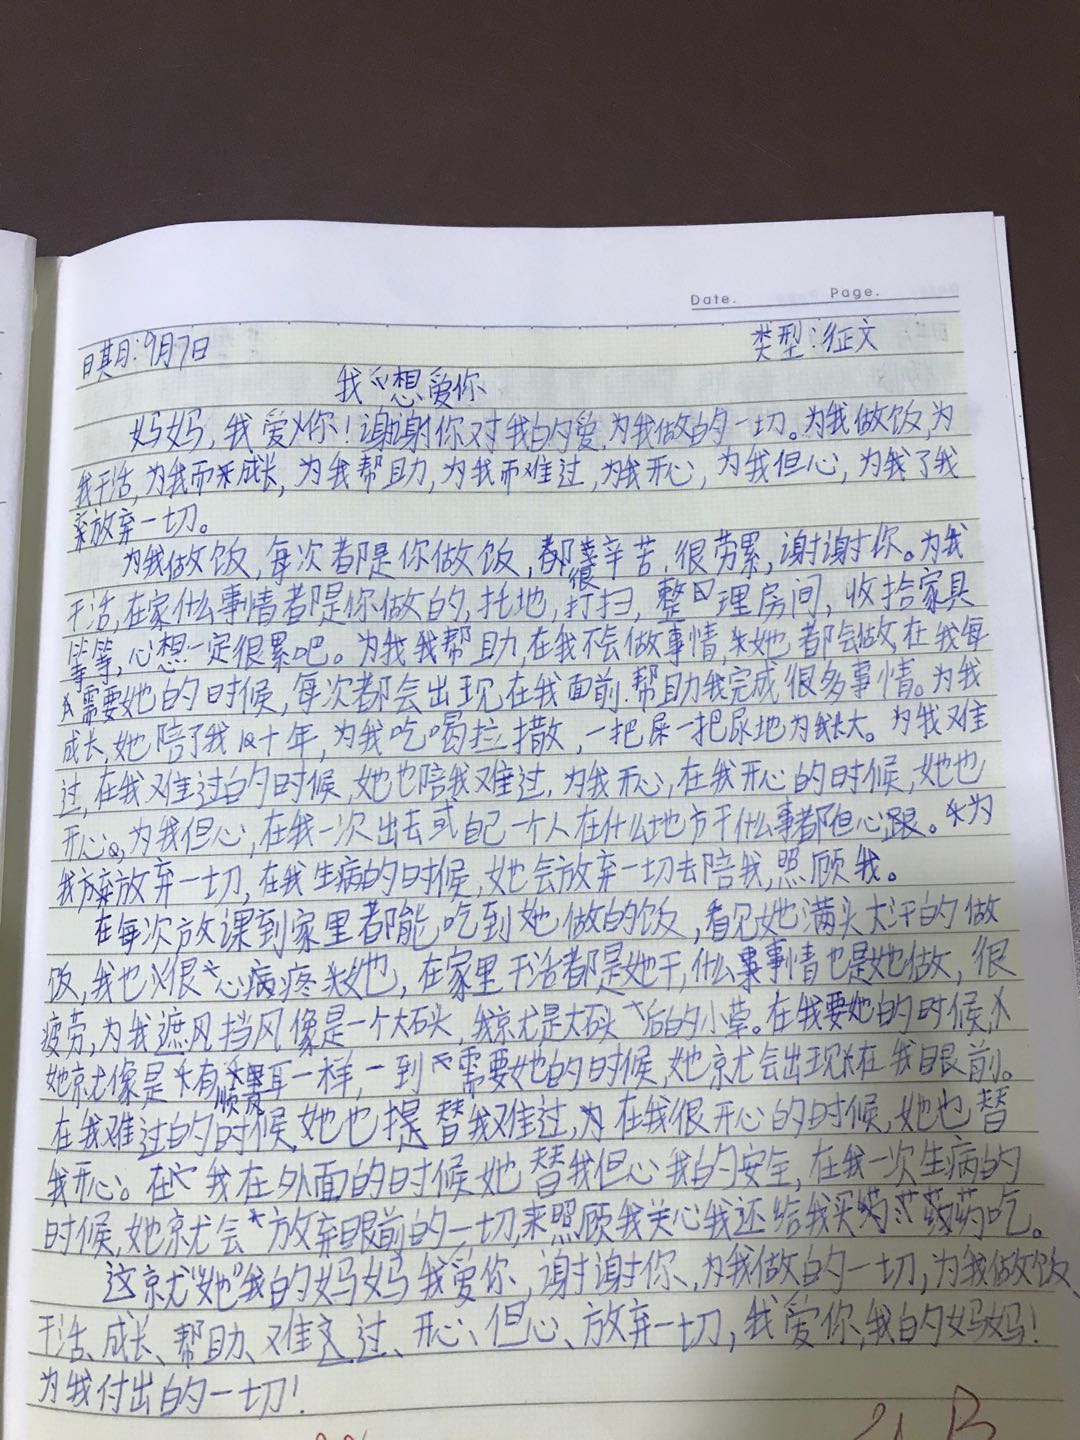 Date. Page.
日期:9月7日 类型:征文
我想爱你
妈妈,我爱你!谢谢你对我的爱,为我做的一切。为我做饭,为
我干活,为我而成长,为我帮助,为我而难过,为我开心,为我但心,为我了我
放弃一切。
为我做饭,每次都是你做饭,都很辛苦,很劳累,谢谢你。为我
干活,在家什么事情都是你做的,托地,打扫,整理房间,收拾家具
等等,心想一定很累吧。为我我帮助,在我不会做事情,她都会做,在我每
需要她的时候,每次都会出现在我面前.帮助我完成很多事情。为我
成长,她陪了我十年,为我吃喝拉撒,一把屎一把尿地为我长大。为我难
过,在我难过的时候,她也陪我难过,为我开心,在我开心的时候,她也
开心。为我但心,在我一次出去或自己一个人在什么地方干什么事都但心跟。为
我放弃一切,在我生病的时候,她会放弃一切去陪我,照顾我。
在每次放课到家里都能吃到她做的饭,看见她满头大汗的做
饭,我也很心疼她,在家里干活都是她干,什么事情也是她做,很
疲劳,为我遮风挡风像是一个大石头,我就是大石头后的小草。在我要她的时候,
她就像是有顺风耳一样,一到需要她的时候,她就会出现在我眼前。
在我难过的时候,她也替我难过,在我很开心的时候,她也替
我开心。在我在外面的时候她替我但心我的安全,在我一次生病的
时候,她就会放弃眼前的一切,来照顾我关心我还给我买药吃。
这就“她”我的妈妈我爱你,谢谢你、为我做的一切,为我做饭、
干活、成长、帮助、难过、开心、但心、放弃一切,我爱你,我的妈妈!
为我付出的一切!
B